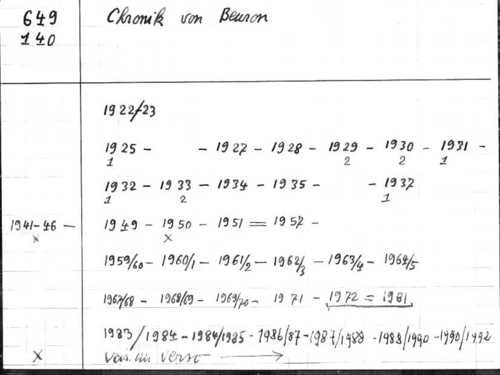 649 Chronik von Beuron
140
1922/23
1925 - - 1927 - 1928 - 1929 - 1930 - 1931 -
1 2 2 1
1932 - 1933 - 1934 - 1935 - - 1937
1 2 1
1941-46 - 1949 - 1950 - 1951 = 1957 -
x x
1959/60 - 1960/1 - 1961/2 - 1962/3 - 1963/4 - 1964/5
1967/68 - 1968/69 - 1969/70 - 1971 - 1972 = 1981
1983/1984 - 1984/1985 - 1986/87 - 1987/1988 - 1988/1990 - 1990/1992
x verso →